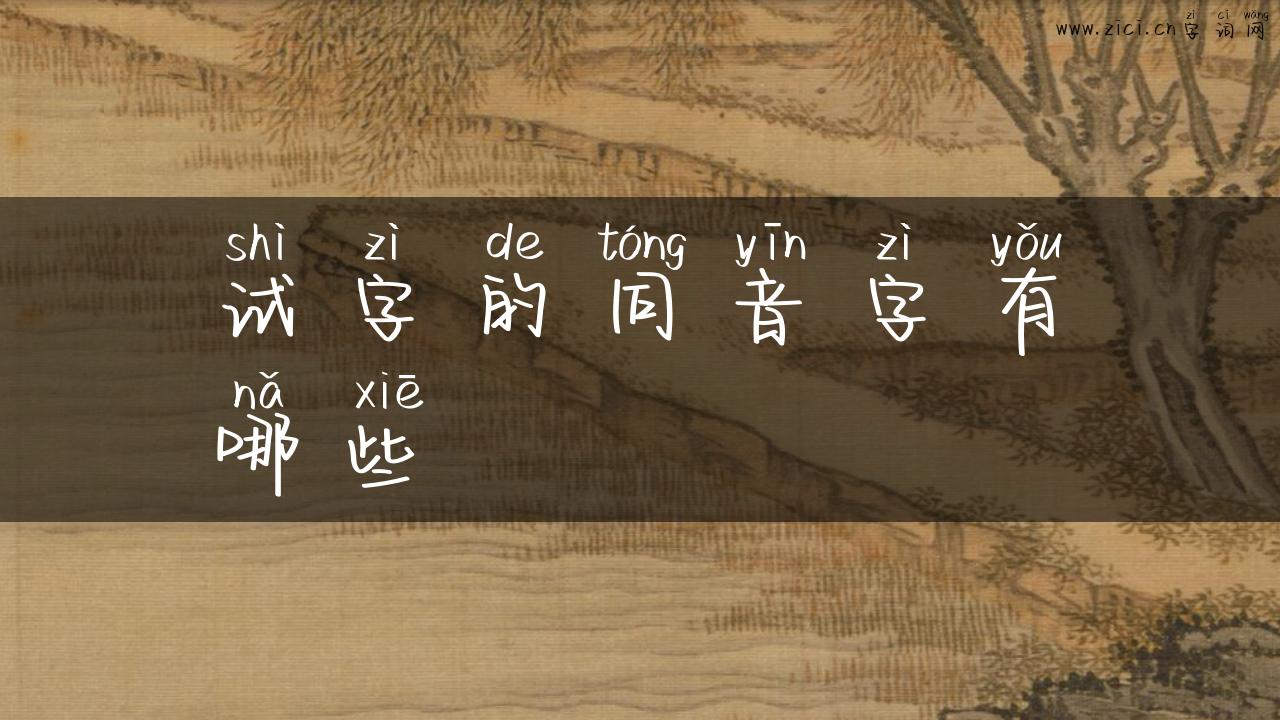 zì cí wǎng
www.zici.cn 字 词 网
shì zì de tóng yīn zì yǒu
试 字 的 同 音 字 有
nǎ xiē
哪 些